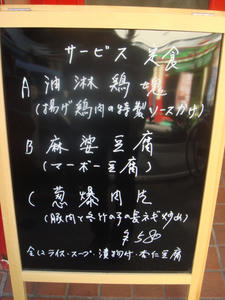 サービス定食
A 油淋鶏塊
(揚げ鶏肉の特製ソースかけ)
B 麻婆豆腐
(マーボー豆腐)
C 葱爆肉片
(豚肉と竹の子の葱ネギ炒め)
¥580
全てにライス・スープ・漬物付・杏仁豆腐